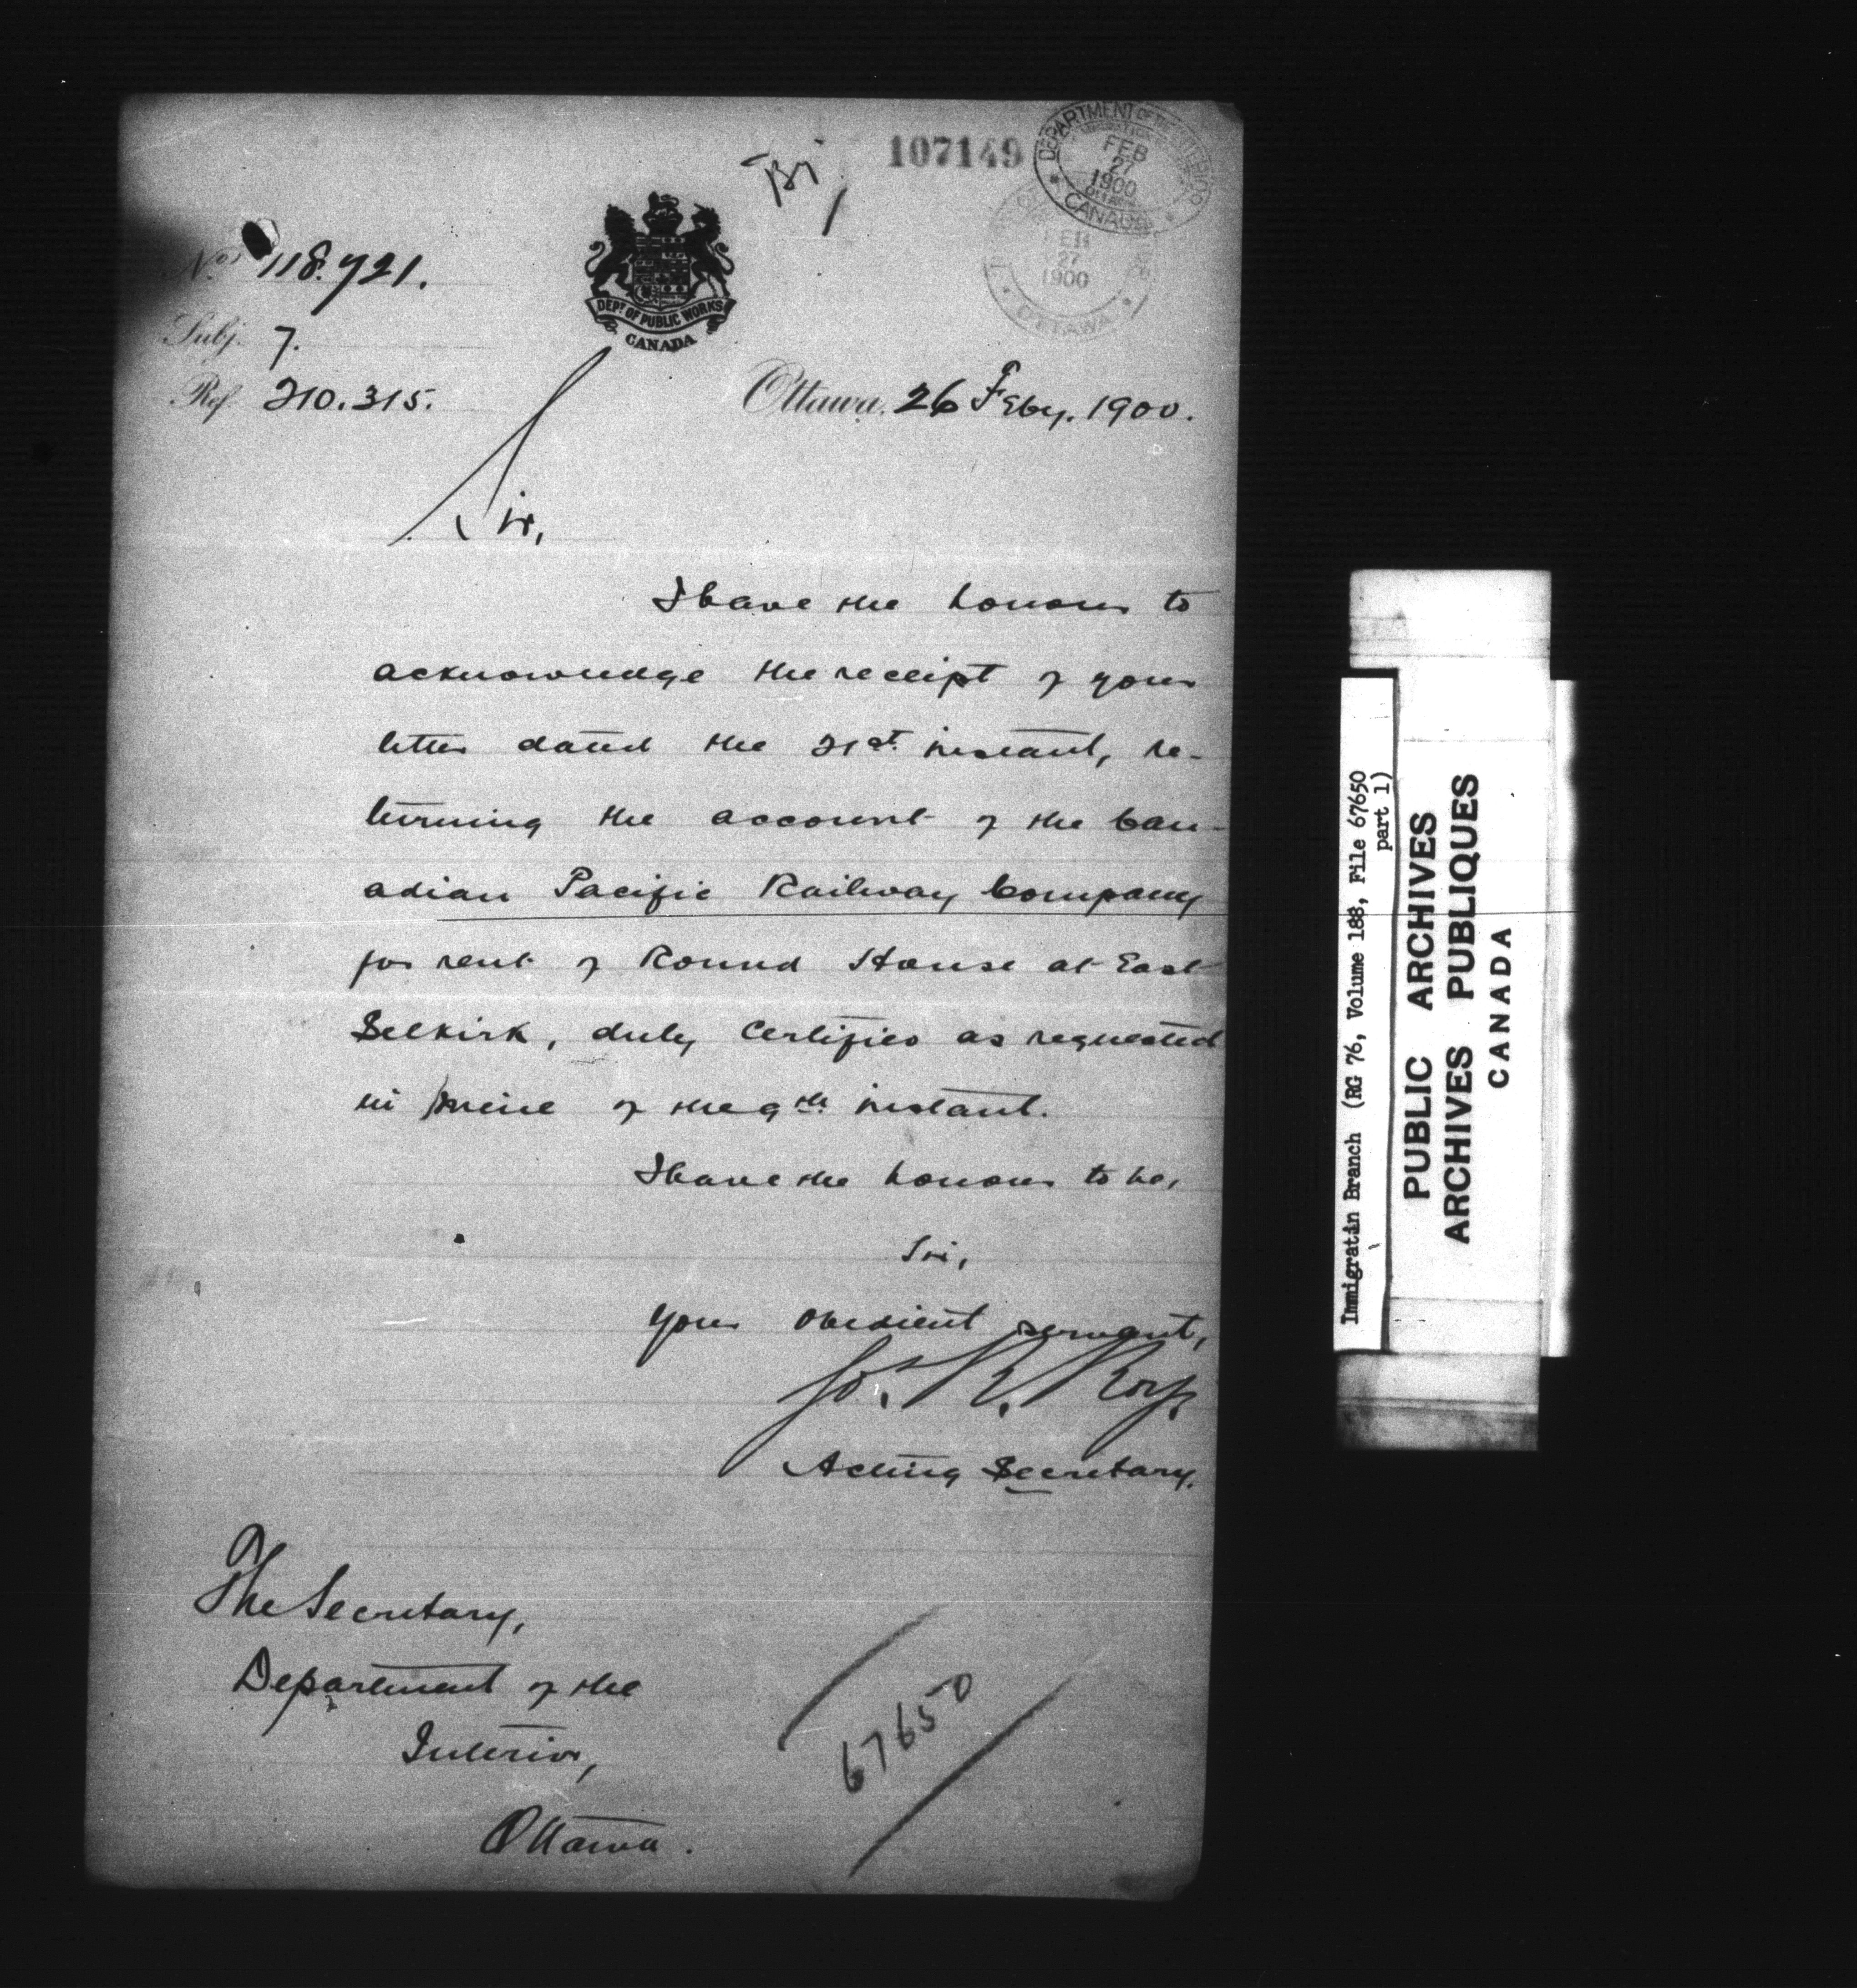 107149
DEPARTMENT OF THE INTERIOR
FEB
27
1900
OTTAWA
CANADA
FEB
27
1900
OTTAWA
No. 118.721.
Subj. 7.
Ref. 210.315.
DEPT OF PUBLIC WORKS
CANADA
Ottawa, 26 Feby. 1900.
Sir,
I have the honour to
acknowledge the receipt of your
letter dated the 21st instant, re-
turning the account of the Can-
adian Pacific Railway Company
for rent of Round House at East
Selkirk, duly certified as requested
in mine of the 9th instant.
I have the honour to be,
Sir,
Your obedient servant,
Jo. R. Roy.
Acting Secretary.
The Secretary,
Department of the
Interior,
Ottawa.
67650
Immigratin Branch (RG 76, Volume 188, File 67650
part 1)
PUBLIC ARCHIVES
ARCHIVES PUBLIQUES
CANADA